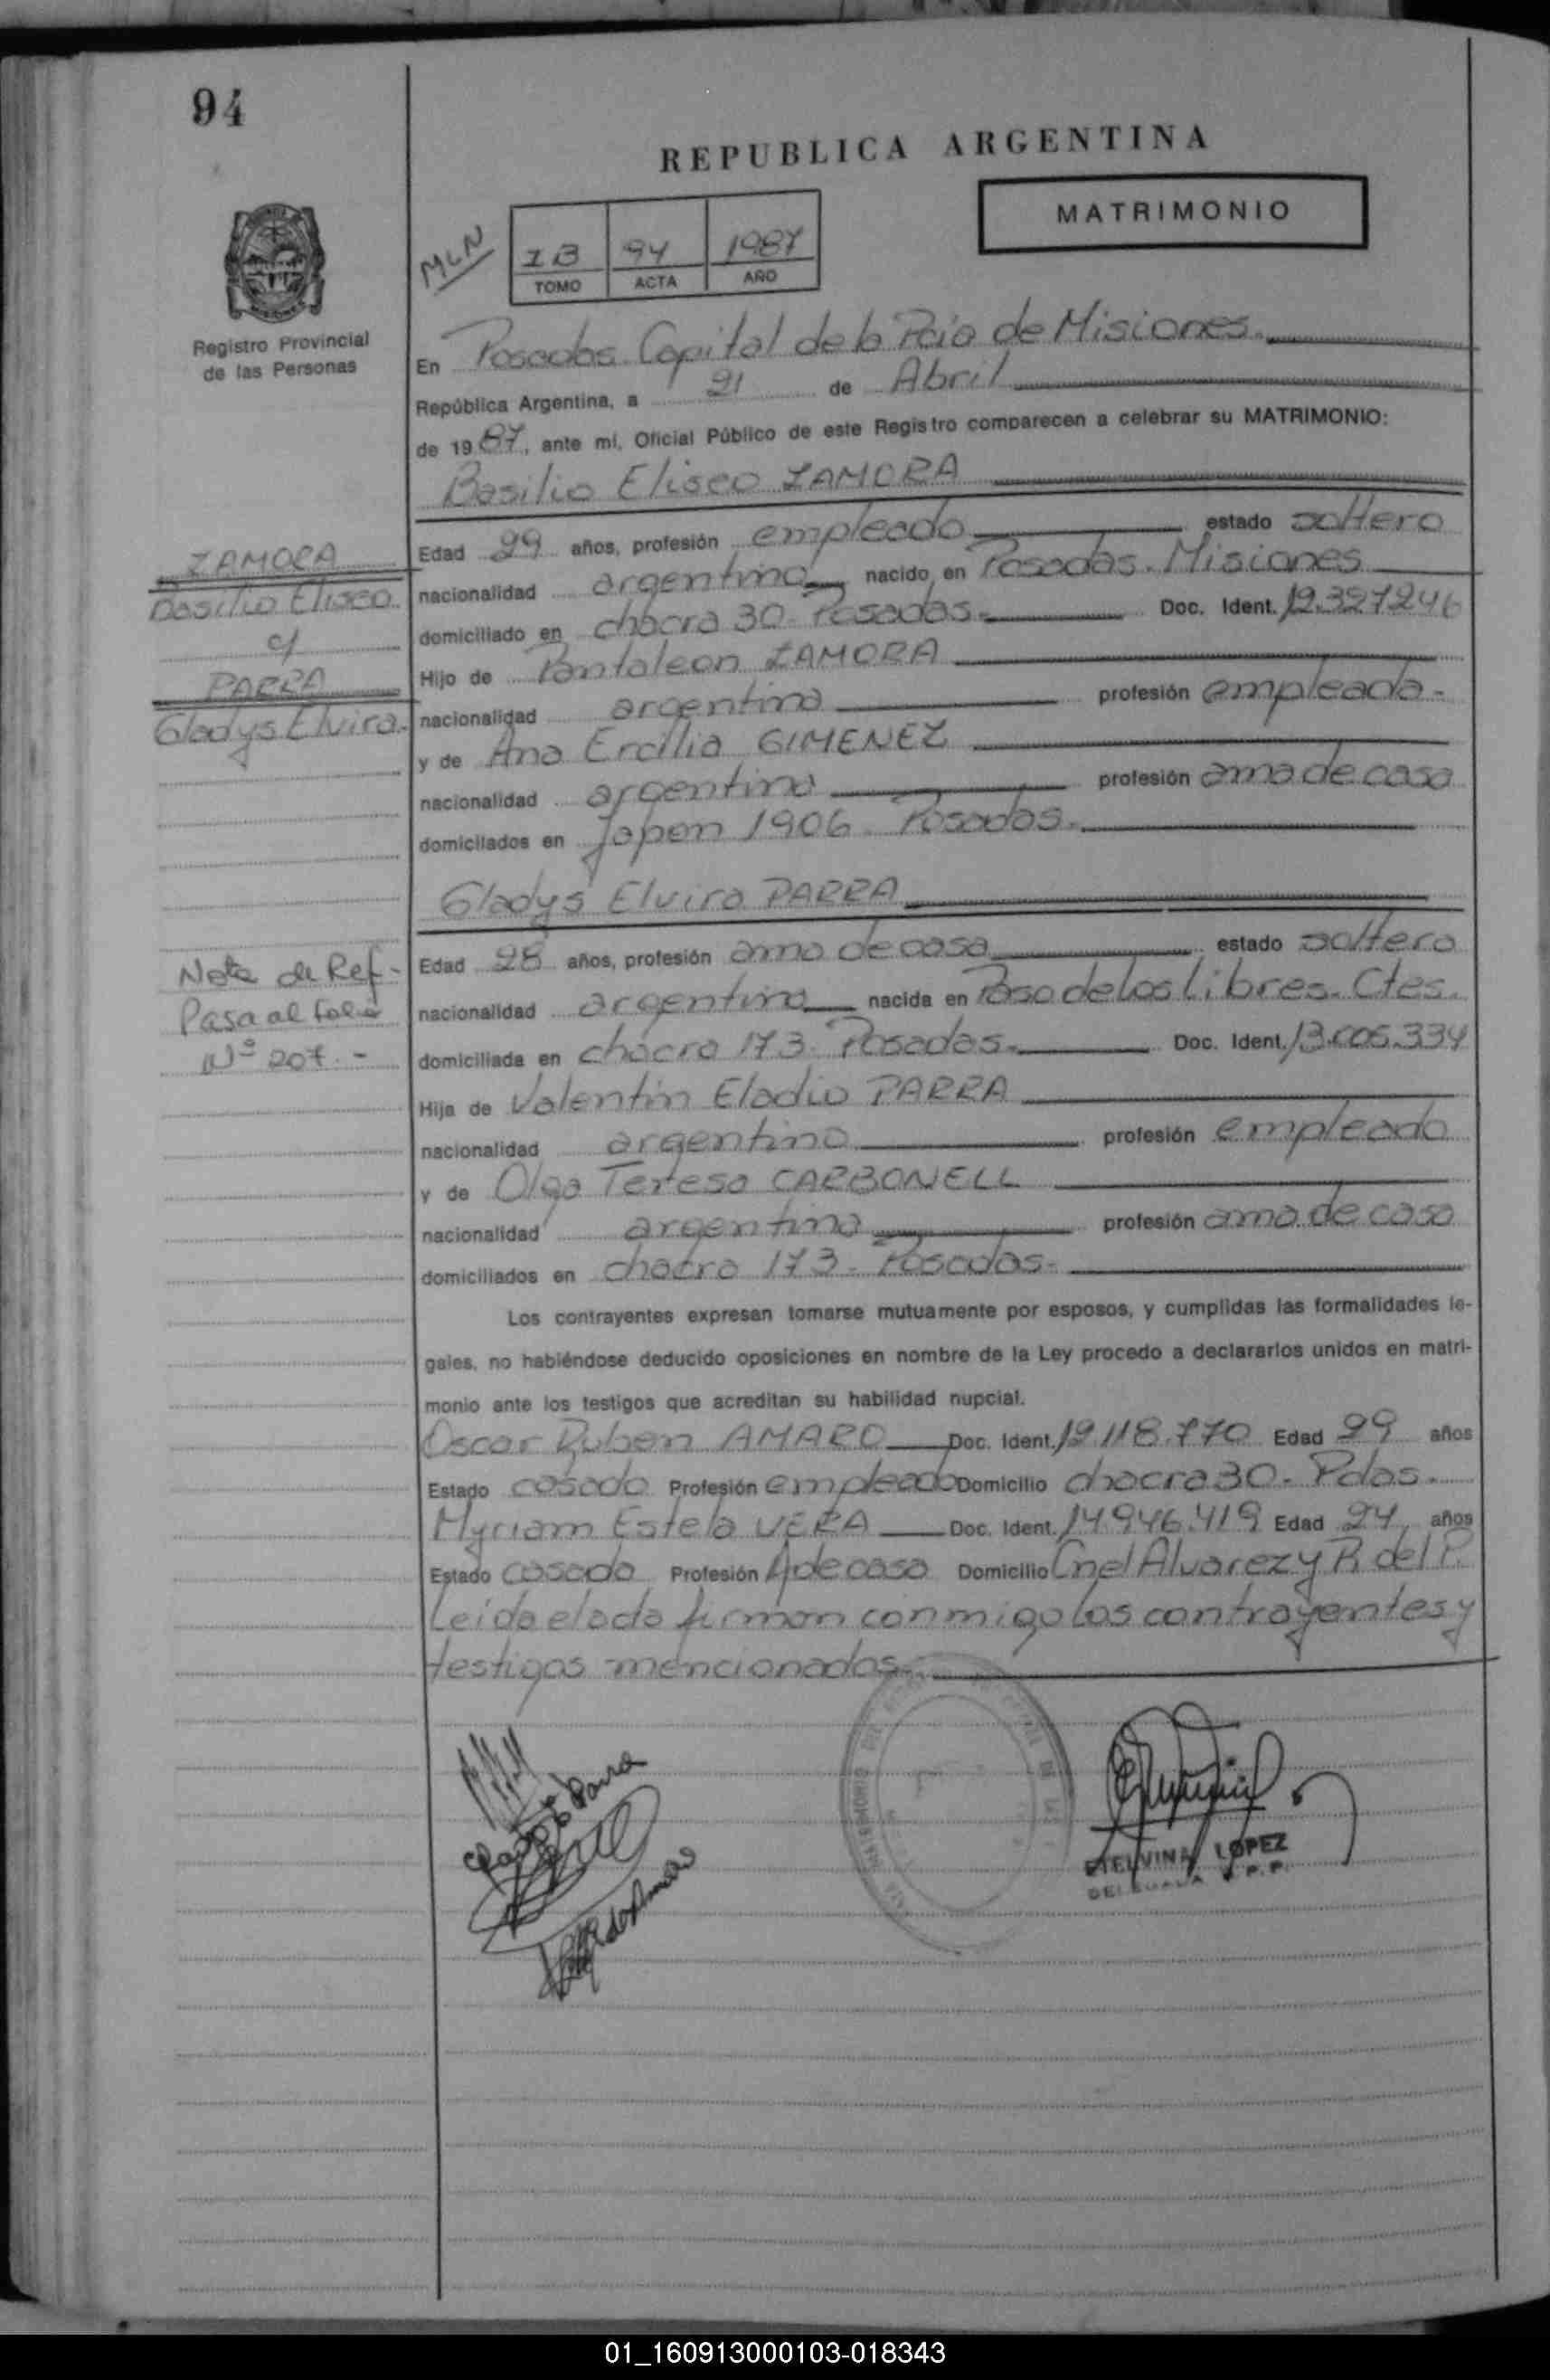 94
REPUBLICA ARGENTINA
MATRIMONIO
MLN
1B 94 1987
TOMO ACTA AÑO
Registro Provincial
de las Personas
En Posadas Capital de la Pcia de Misiones.
República Argentina, a 21 de Abril
de 1987, ante mí, Oficial Público de este Registro comparecen a celebrar su MATRIMONIO:
Basilio Eliseo ZAMORA
Edad 29 años, profesión empleado estado soltero
nacionalidad argentino nacido en Posadas. Misiones
domiciliado en chacra 30. Posadas. Doc. Ident. 12.327246
Hijo de Pantaleon ZAMORA
nacionalidad argentina profesión empleado.
y de Ana Ercilia GIMENEZ
nacionalidad argentina profesión ama de casa
domiciliados en Japon 1906. Posadas.
ZAMORA
Basilio Eliseo
c/
PARRA
Gladys Elvira.
Gladys Elvira PARRA
Edad 28 años, profesión ama de casa estado soltera
nacionalidad argentina nacida en Paso de los Libres. Ctes.
domiciliada en chacra 173. Posadas. Doc. Ident. 13.005.334
Hija de Valentin Eladio PARRA
nacionalidad argentino profesión empleado
y de Olga Teresa CARBONELL
nacionalidad argentina profesión ama de casa
domiciliados en chacra 173. Posadas.
Nota de Ref-
Pasa al Folio
Nº 207.-
Los contrayentes expresan tomarse mutuamente por esposos, y cumplidas las formalidades le-
gales, no habiéndose deducido oposiciones en nombre de la Ley procedo a declararlos unidos en matri-
monio ante los testigos que acreditan su habilidad nupcial.
Oscar Ruben AMARO Doc. Ident. 12.118.770 Edad 29 años
Estado casado Profesión empleado Domicilio chacra 30. Pdas.
Myriam Estela VERA Doc. Ident. 14946.419 Edad 24 años
Estado casada Profesión A de casa Domicilio Cnel Alvarez y R. del P.
Leida el acta firman conmigo los contrayentes y
testigos mencionados.
ETELVINA LOPEZ
01_160913000103-018343